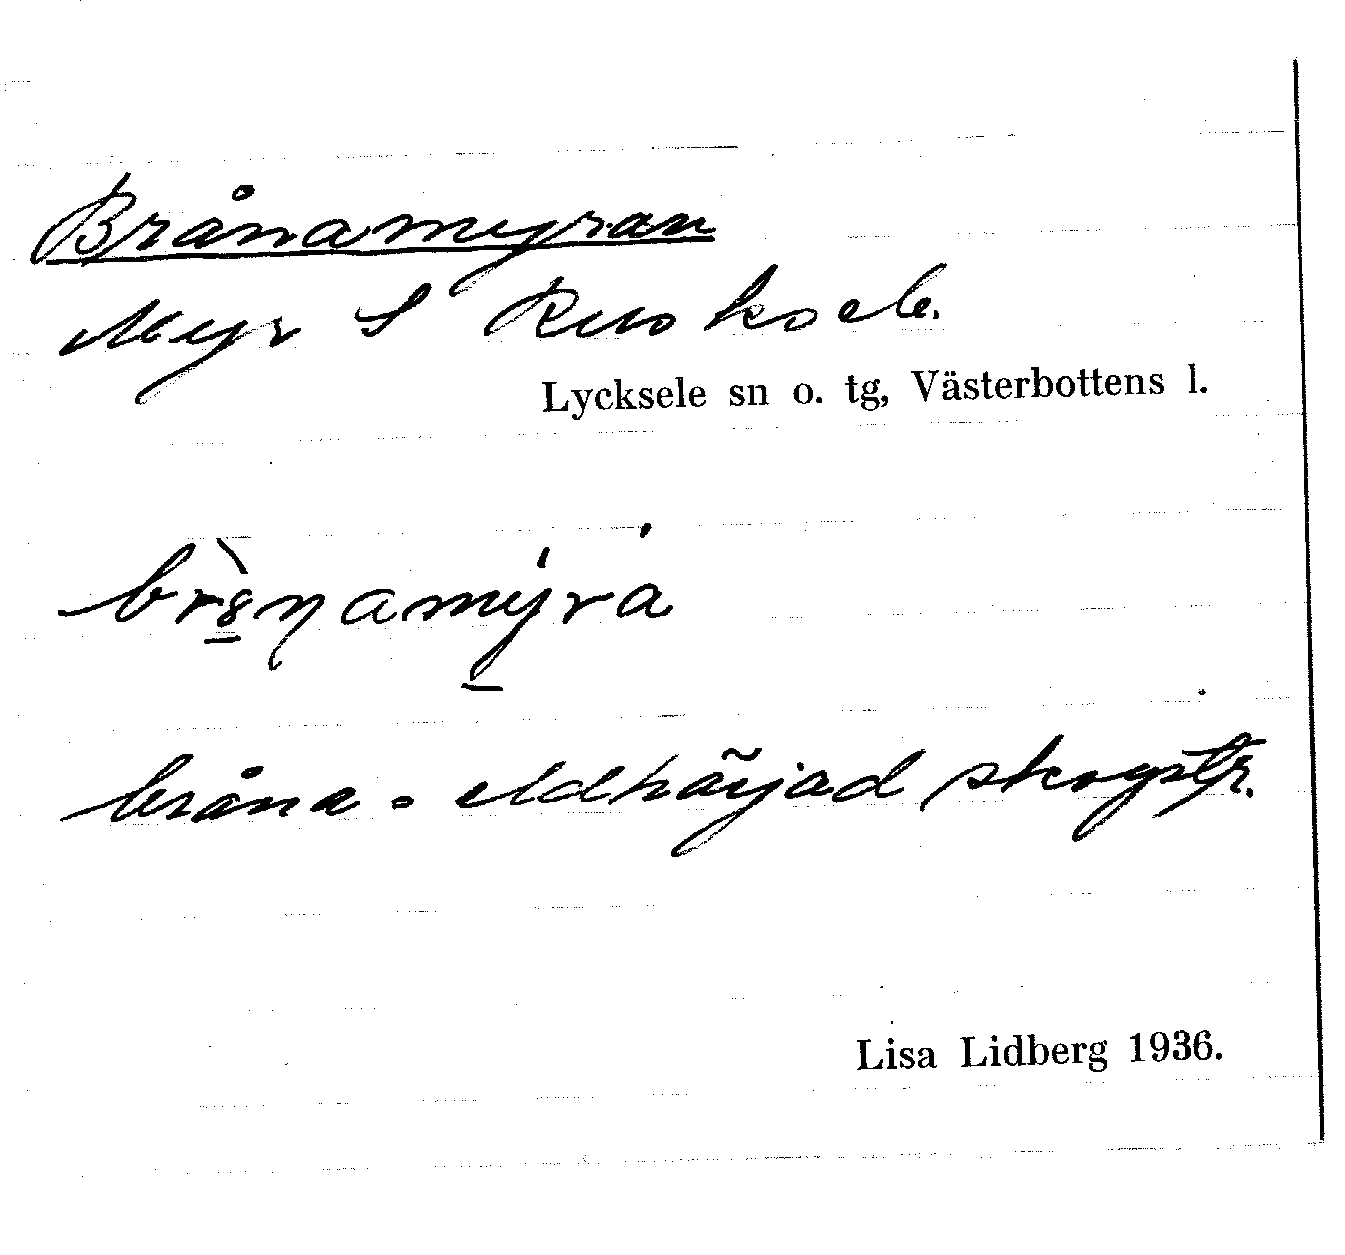 Brånamyran
Myr S Ruoksele.
Lycksele sn o. tg, Västerbottens l.
bråna = eldhärjad skogstr.
Lisa Lidberg 1936.